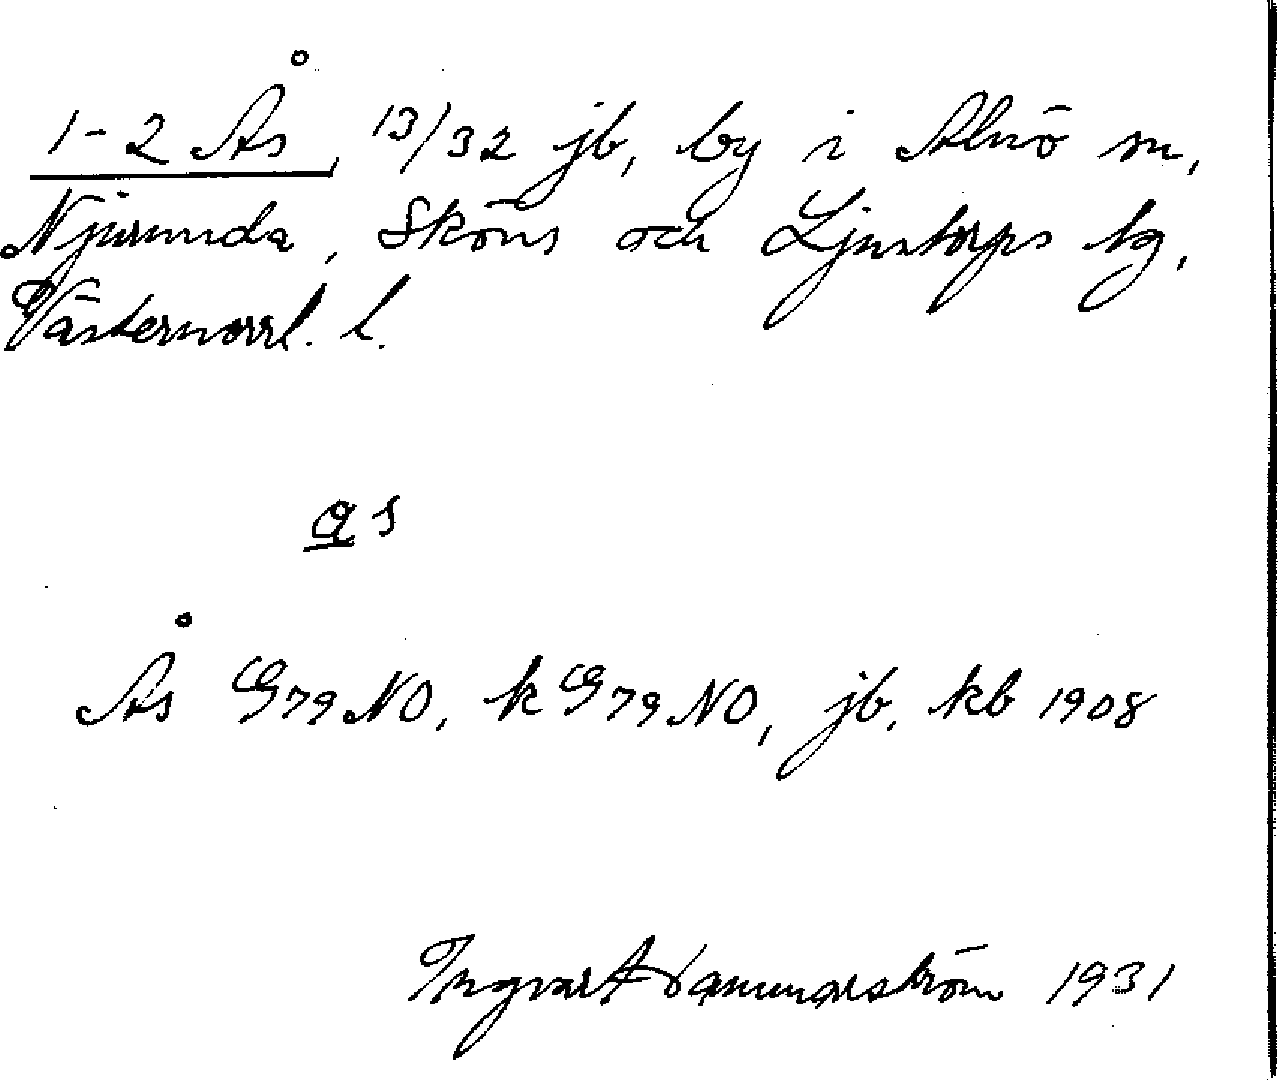 1-2 Ås, 13/32 jb, by i Alnö sn,
Njurunda, Sköns och Ljustorps tg,
Västernorrl. l.
a s
Ås G79NO, k G79NO, jb, kb 1908
Ingvar 1931